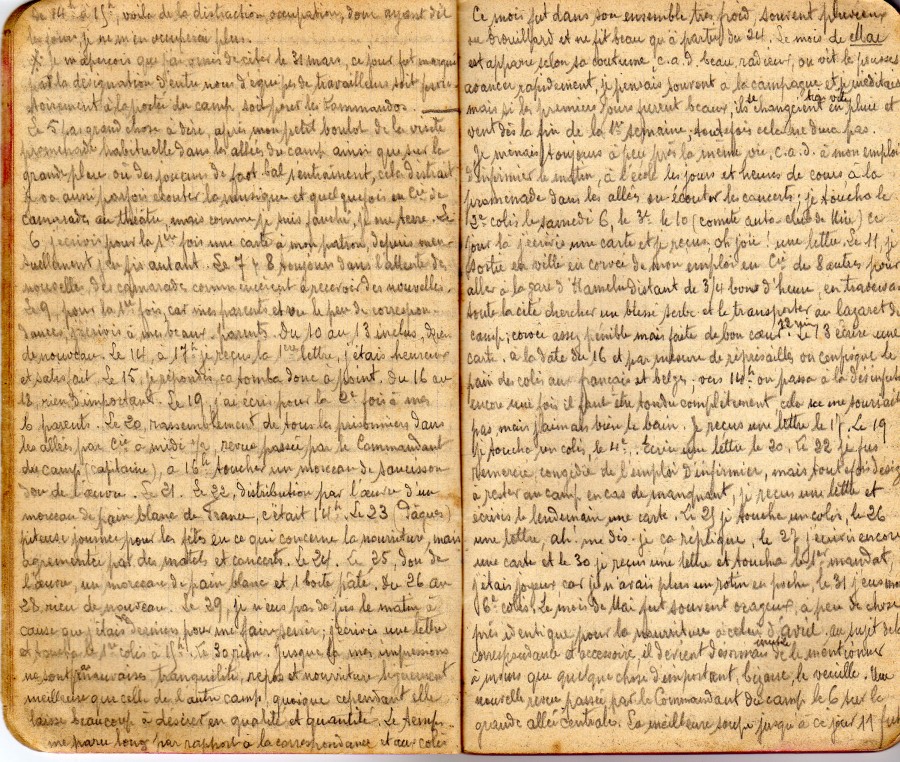 Le 14 à 15h, voila de la distraction occupation, dont ayant dit
les jours je ne m'en occuperai plus.
Je m'aperçois que j'ai omis de citer le 31 mars, ce jour fut marqué
par la désignation d'entre nous d'équipes de travailleurs soit
à la portée du camp soit pour les Kommandos.
Le 5 pas grand chose à dire, après mon petit boulot de la visite
promenade habituelle dans les allées du camp ainsi que sur la
grande place où des joueurs de foot-bal s'entrainent, cela distrait
on va aussi parfois écouter la musique et quelquefois en Cie de
camarades au théâtre, mais comme je suis fauché, je me terre. Le
6 j'écrivis pour la 1ère fois une carte à mon patron, depuis men-
suellement j'en fis autant. Le 7 & 8 toujours dans l'attente de
nouvelle, des camarades commencèrent à recevoir des nouvelles.
Le 9, pour la 1ère fois, car mes parents et vu le peu de correspon-
dances, j'écrivis à mes beaux-parents. Du 10 au 13 inclus, rien
de nouveau. Le 14, à 17h je reçus la 1ère lettre, j'étais heureux
et satisfait. Le 15, je répondis, ça tomba donc à point. Du 16 au
18, rien d'important. Le 19 j'ai écris pour la 2e fois à mes
b. parents. Le 20, rassemblement de tous les prisonniers dans
les allées par Cie à midi 1/2, revue passée par le Commandant
du camp (capitaine), à 16h toucher un morceau de saucisson
don de l'œuvre. Le 21. Le 22, distribution par l'œuvre d'un
morceau de pain blanc de France, c'était 14h. Le 23 (Pâques)
piteuse journée pour les fêtes en ce qui concerne la nourriture, mais
agrementée par des matchs et concerts. Le 24. Le 25, don de
l'œuvre, un morceau de pain blanc et 1 boite pâté. Du 26 au
28 rien de nouveau. Le 29, je n'eus pas de jus le matin à
cause que j'étais des derniers pour me faire servir, j'écrivis une lettre
et toucha le 1er colis à 15h. Le 30 rien. Jusque là mes impressions
ne sont pas mauvaises, tranquilité, repos et nourriture légèrement
meilleure que celle de l'autre camp, quoique cependant elle
laisse beaucoup à désirer en qualité et quantité. Le temps
me parut long par rapport à la correspondance et aux colis
Ce mois fut dans son ensemble très froid, souvent pluvieux
ou brouillard et ne fit beau qu'à partir du 24. Le mois de Mai
est apparu selon sa coutume c.a.d. beau, radieux, on vit les pousses
avancer rapidement, je pensais souvent à la campagne et
mais si les premiers jours furent beaux, ils se changèrent très vite en pluie et
vent dès la fin de la 1ère semaine, toutefois cela ne dura pas.
Je menais toujours à peu près la même vie, c.a.d. à mon emploi
d'infirmier le matin, à l'école les jours et heures de cours à la
promenade dans les allées ou écouter les concerts; je toucha le
2e colis le samedi 6, le 3e le 10 (comité auto-club de ) ce
jour là j'écrivis une carte et je reçus oh joie! une lettre. Le 11, je
sortis en ville en corvée de mon emploi en Cie de 8 autres pour
aller à la gare d'Hameln distant de 3/4 bons d'heure, en traversant
toute la cité chercher un blessé serbe et le transporter au lazaret du
camp; corvée assez pénible mais faite de bon cœur. Le 13 écrivis une
carte, à la date du 16 et par mesure de représailles on confisque le
pain des colis aux français et belges. vers 14h on passa à la désinfection
encore une fois il faut être tondu complètement cela ne me tourmente
pas mais j'aimais bien le bain. Je reçus une lettre le 17. Le 19
je toucha un colis, le 4e. Ecrivis une lettre le 20. Le 22 je fus
remercié, congédié de l'emploi d'infirmier, mais toutefois désigné
à rester au camp en cas de manquant, je reçus une lettre et
écrivis le lendemain une carte. Le 25 je toucha un colis, le 26
une lettre, ah me dis-je ça réplique, le 27 j'écrivis encore
une carte et le 30 je reçus une lettre et toucha le 1er mandat,
j'étais joyeux car je n'avais plus un rotin en poche, le 31 j'eus mon
6e colis. Le mois de Mai fut souvent orageux, à peu de chose
près identique pour la nourriture à celui d'avril. au sujet de la
correspondance et accessoire, il devient désormais inutile de le mentionner
à moins que quelque chose d'important, bizarre, le veuille. Une
nouvelle revue passée par le Commandant du camp le 6 sur la
grande allée centrale. La meilleure soupe jusqu'à ce jour 11 fut